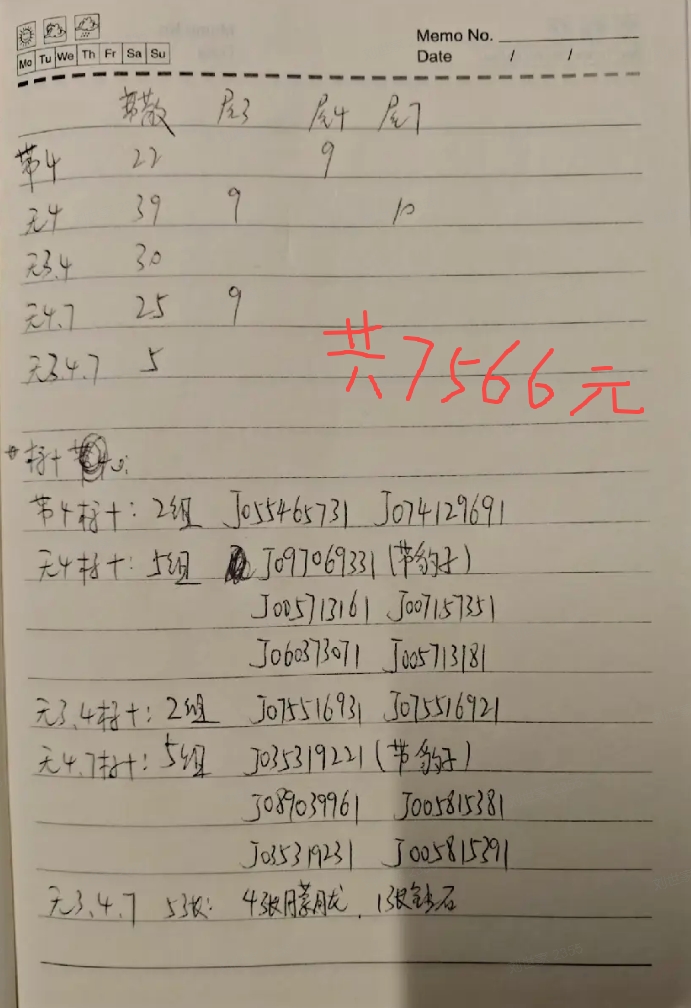 Memo No.
Mo Tu We Th Fr Sa Su
Date / /
带散 尾3 尾4 尾7
带4 22 9
无4 39 9 10
无3.4 30
无4.7 25 9
无3.4.7 5
共7566元
标十
带4标十: 2组 J055465731 J074129691
无4标十: 5组 J097069331 (带豹子)
J005713161 J007157351
J060373071 J005713181
无3.4标十: 2组 J075516931 J075516921
无4.7标十: 5组 J035319221 (带豹子)
J089039961 J005815381
J035319231 J005815391
无3.4.7 53张: 43张朦胧龙, 1张钻石